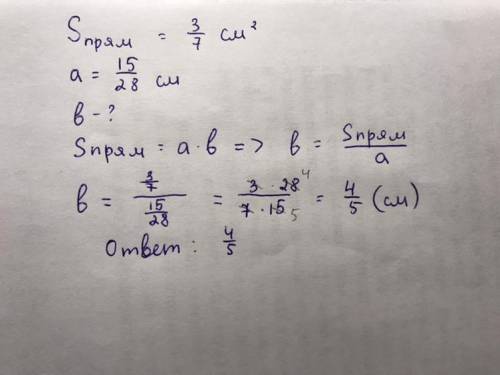 Sпрям = 3/7 см²
a = 15/28 см
в - ?
Sпрям = a · в => в = Sпрям/a
в = (3/7)/(15/28) = (3 · 28 4)/(7 · 15 5) = 4/5 (см)
Ответ: 4/5